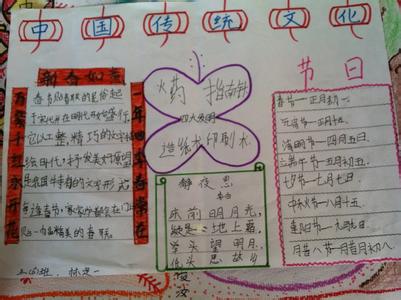 中国传统文化
新春如意
万紫千红永开花
一年四季春常在
春节贴春联的风俗起
于宋代并在明代开始盛行
它以工整、精巧的文字
火药 指南针
四大发明
造纸术 印刷术
静夜思
李白
床前明月光,
疑是地上霜。
举头望明月,
低头思故乡
节日
春节——正月初一
元宵节——正月十五
清明节——四月五日
端午节——五月初五
七夕节——七月七日
中秋节——八月十五
重阳节——九月九